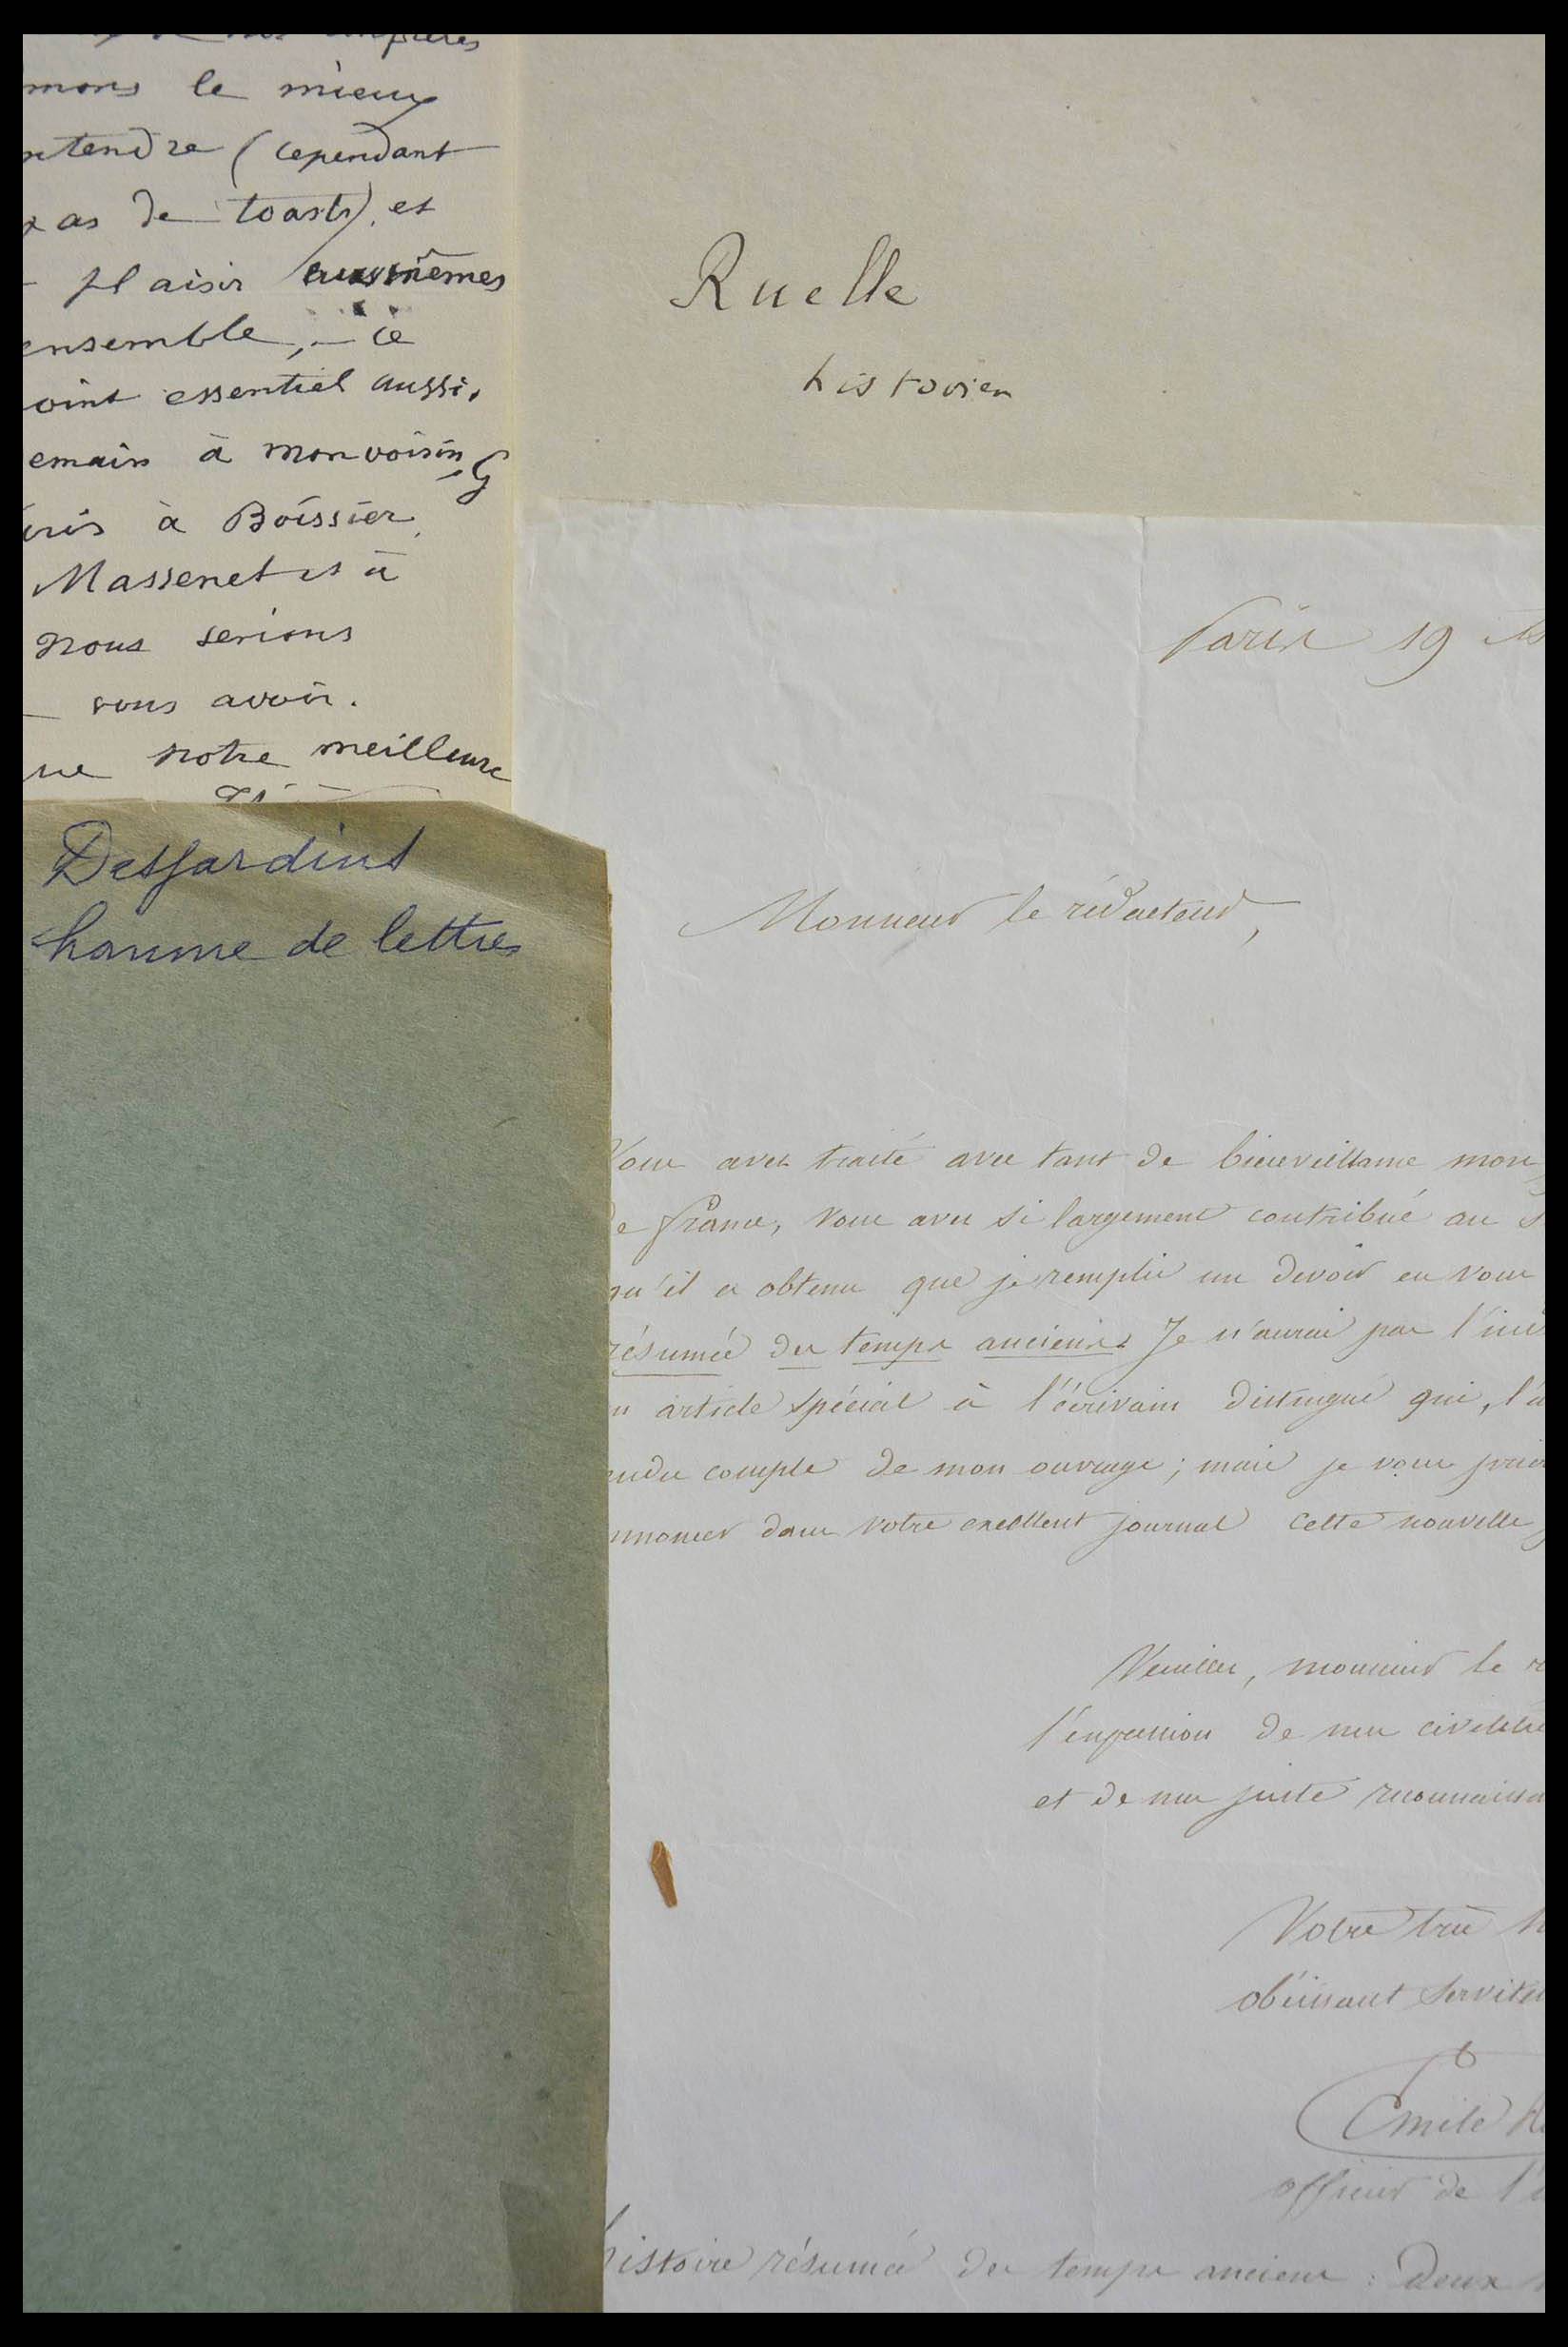 mons le mieux
tendre (cependant
pas de toasts), et
plaisir eux-mêmes
ensemble, – ce
oint essentiel aussi.
emain à mon voisin, G
aris à Boissier,
Massenet et à
nous serions
vous avoir.
ue notre meilleure
Desjardins
homme de lettres
Ruelle
historien
Paris 19
Monsieur le rédacteur,
Vous avez traité avec tant de bienveillance mon
de france, vous avez si largement contribué au s
qu'il a obtenu que je remplis un devoir en vous
résumée des temps anciens. Je n'aurai pas l'in
n article spécial à l'écrivain distingué qui, l'a
endu compte de mon ouvrage; mais je vous prie
nnoncer dans votre excellent journal cette nouvelle
Veuillez, monsieur le r
l'expression de mes civilités
et de ma juste reconnaissa
Votre très h
obéissant servite
Emile Ru
officier de l'i
histoire résumée des temps anciens : Deux